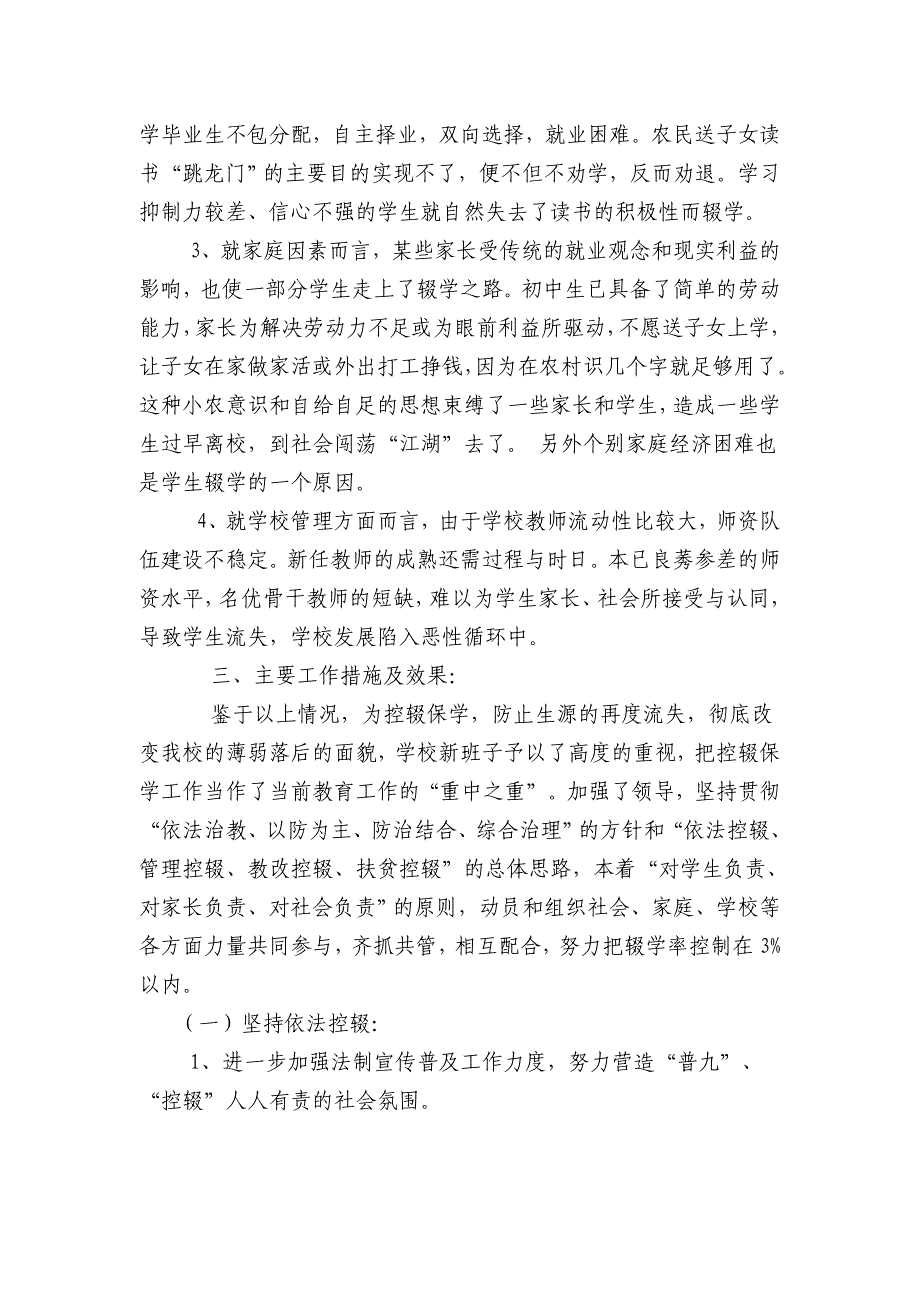 学毕业生不包分配，自主择业，双向选择，就业困难。农民送子女读
书“跳龙门”的主要目的实现不了，便不但不劝学，反而劝退。学习
抑制力较差、信心不强的学生就自然失去了读书的积极性而辍学。
3、就家庭因素而言，某些家长受传统的就业观念和现实利益的
影响，也使一部分学生走上了辍学之路。初中生已具备了简单的劳动
能力，家长为解决劳动力不足或为眼前利益所驱动，不愿送子女上学，
让子女在家做家活或外出打工挣钱，因为在农村识几个字就足够用了。
这种小农意识和自给自足的思想束缚了一些家长和学生，造成一些学
生过早离校，到社会闯荡“江湖”去了。 另外个别家庭经济困难也
是学生辍学的一个原因。
4、就学校管理方面而言，由于学校教师流动性比较大，师资队
伍建设不稳定。新任教师的成熟还需过程与时日。本已良莠参差的师
资水平，名优骨干教师的短缺，难以为学生家长、社会所接受与认同，
导致学生流失，学校发展陷入恶性循环中。
三、主要工作措施及效果：
鉴于以上情况，为控辍保学，防止生源的再度流失，彻底改
变我校的薄弱落后的面貌，学校新班子予以了高度的重视，把控辍保
学工作当作了当前教育工作的“重中之重”。加强了领导，坚持贯彻
“依法治教、以防为主、防治结合、综合治理”的方针和“依法控辍、
管理控辍、教改控辍、扶贫控辍”的总体思路，本着“对学生负责、
对家长负责、对社会负责”的原则，动员和组织社会、家庭、学校等
各方面力量共同参与，齐抓共管，相互配合，努力把辍学率控制在 3%
以内。
（一）坚持依法控辍：
1、进一步加强法制宣传普及工作力度，努力营造“普九”、
“控辍”人人有责的社会氛围。